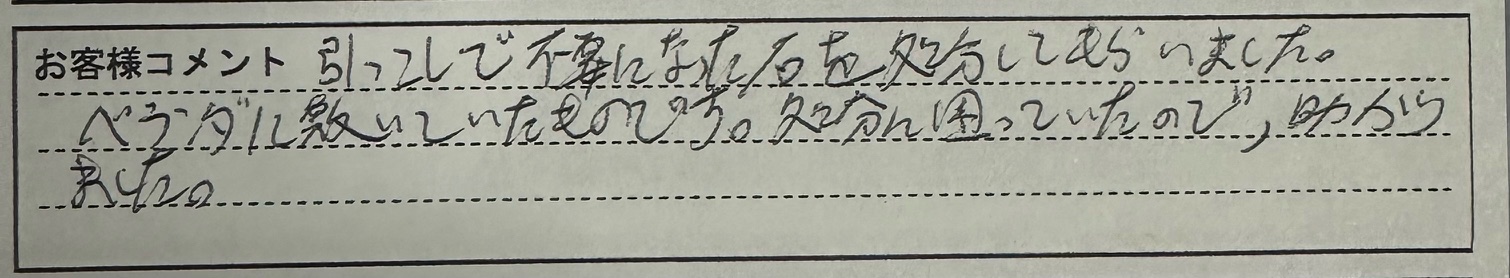 お客様コメント 引っこしで不要になった石を処分してもらいました。
ベランダに敷いていたものです。処分に困っていたので、助かり
ました。